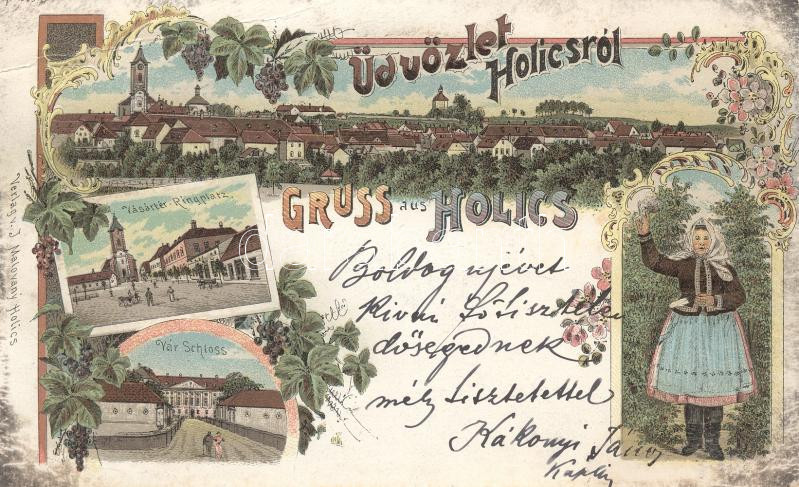 Üdvözlet
Holicsról
GRUSS aus HOLICS
Vásártér-Ringplatz.
Vár Schloss
Verlag v. J.
Holics
Boldog ujévet
Kivni Főtisztelen
dőségednek
mély tisztelettel
Kákonyi János